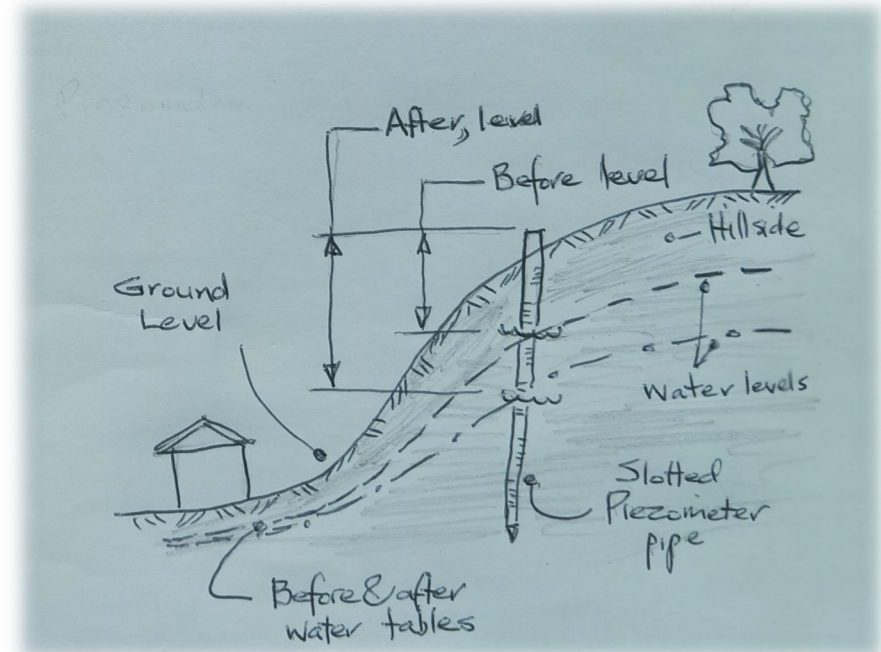 After, level
Before level
Hillside
Ground
Level
Water levels
Slotted
Piezometer
pipe
Before & after
water tables